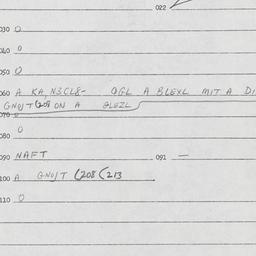 022
030 0
040 0
050 0
060 A KA, N3CL8- OGL A BLEXL MIT A DI
GNO/T (208 ON A GLEZL
070
080 0
090 NAFT 091 —
100 A GNO/T (208 (213
110 0